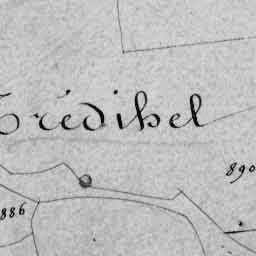 Trédihel
890
886